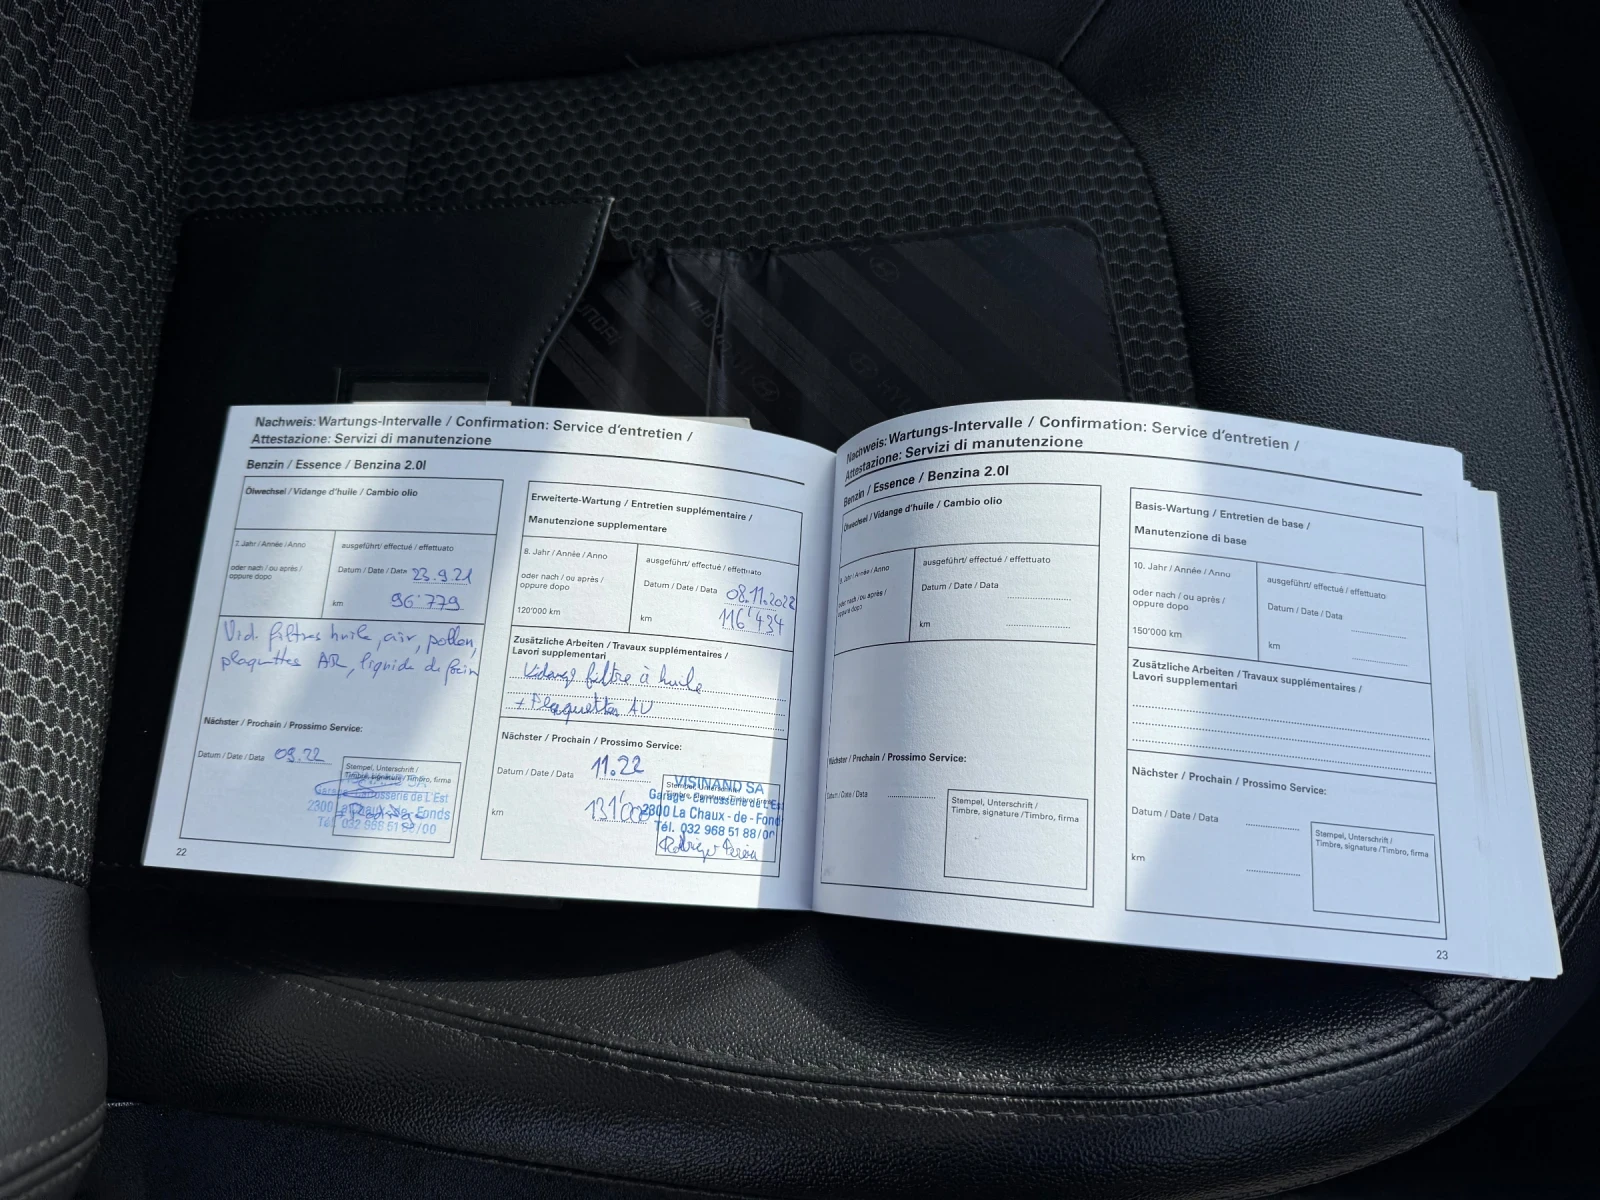 Nachweis: Wartungs-Intervalle / Confirmation: Service d'entretien /
Attestazione: Servizi di manutenzione
Benzin / Essence / Benzina 2.0l
Ölwechsel / Vidange d'huile / Cambio olio
7. Jahr / Année / Anno
oder nach / ou après /
oppure dopo
ausgeführt/ effectué / effettuato
Datum / Date / Data 23.9.21
km 96'779
Vid. filtres huile, air, pollen,
plaquettes AR, liquide de frein
Nächster / Prochain / Prossimo Service:
Datum / Date / Data 09.22
Stempel, Unterschrift /
Timbre, signature / Timbro, firma
Garage-Carrosserie de L'Est
2300 La Chaux-de-Fonds
Tél. 032 968 51 88/00
22
Erweiterte-Wartung / Entretien supplémentaire /
Manutenzione supplementare
8. Jahr / Année / Anno
oder nach / ou après /
oppure dopo
120'000 km
ausgeführt/ effectué / effettuato
Datum / Date / Data 08.11.2022
km 116'434
Zusätzliche Arbeiten / Travaux supplémentaires /
Lavori supplementari
Vidange filtre à huile
+ Plaquettes AV
Nächster / Prochain / Prossimo Service:
Datum / Date / Data 11.22
km
Stempel, Unterschrift /
VISINAND SA
Garage-Carrosserie de L'Est
2300 La Chaux-de-Fonds
Tél. 032 968 51 88/00
Nachweis: Wartungs-Intervalle / Confirmation: Service d'entretien /
Attestazione: Servizi di manutenzione
Benzin / Essence / Benzina 2.0l
Ölwechsel / Vidange d'huile / Cambio olio
9. Jahr / Année / Anno
oder nach / ou après /
oppure dopo
ausgeführt/ effectué / effettuato
Datum / Date / Data
km
Nächster / Prochain / Prossimo Service:
Datum / Date / Data
Stempel, Unterschrift /
Timbre, signature /Timbro, firma
Basis-Wartung / Entretien de base /
Manutenzione di base
10. Jahr / Année / Anno
oder nach / ou après /
oppure dopo
150'000 km
ausgeführt/ effectué / effettuato
Datum / Date / Data
km
Zusätzliche Arbeiten / Travaux supplémentaires /
Lavori supplementari
Nächster / Prochain / Prossimo Service:
Datum / Date / Data
km
Stempel, Unterschrift /
Timbre, signature /Timbro, firma
23
HYUNDAI